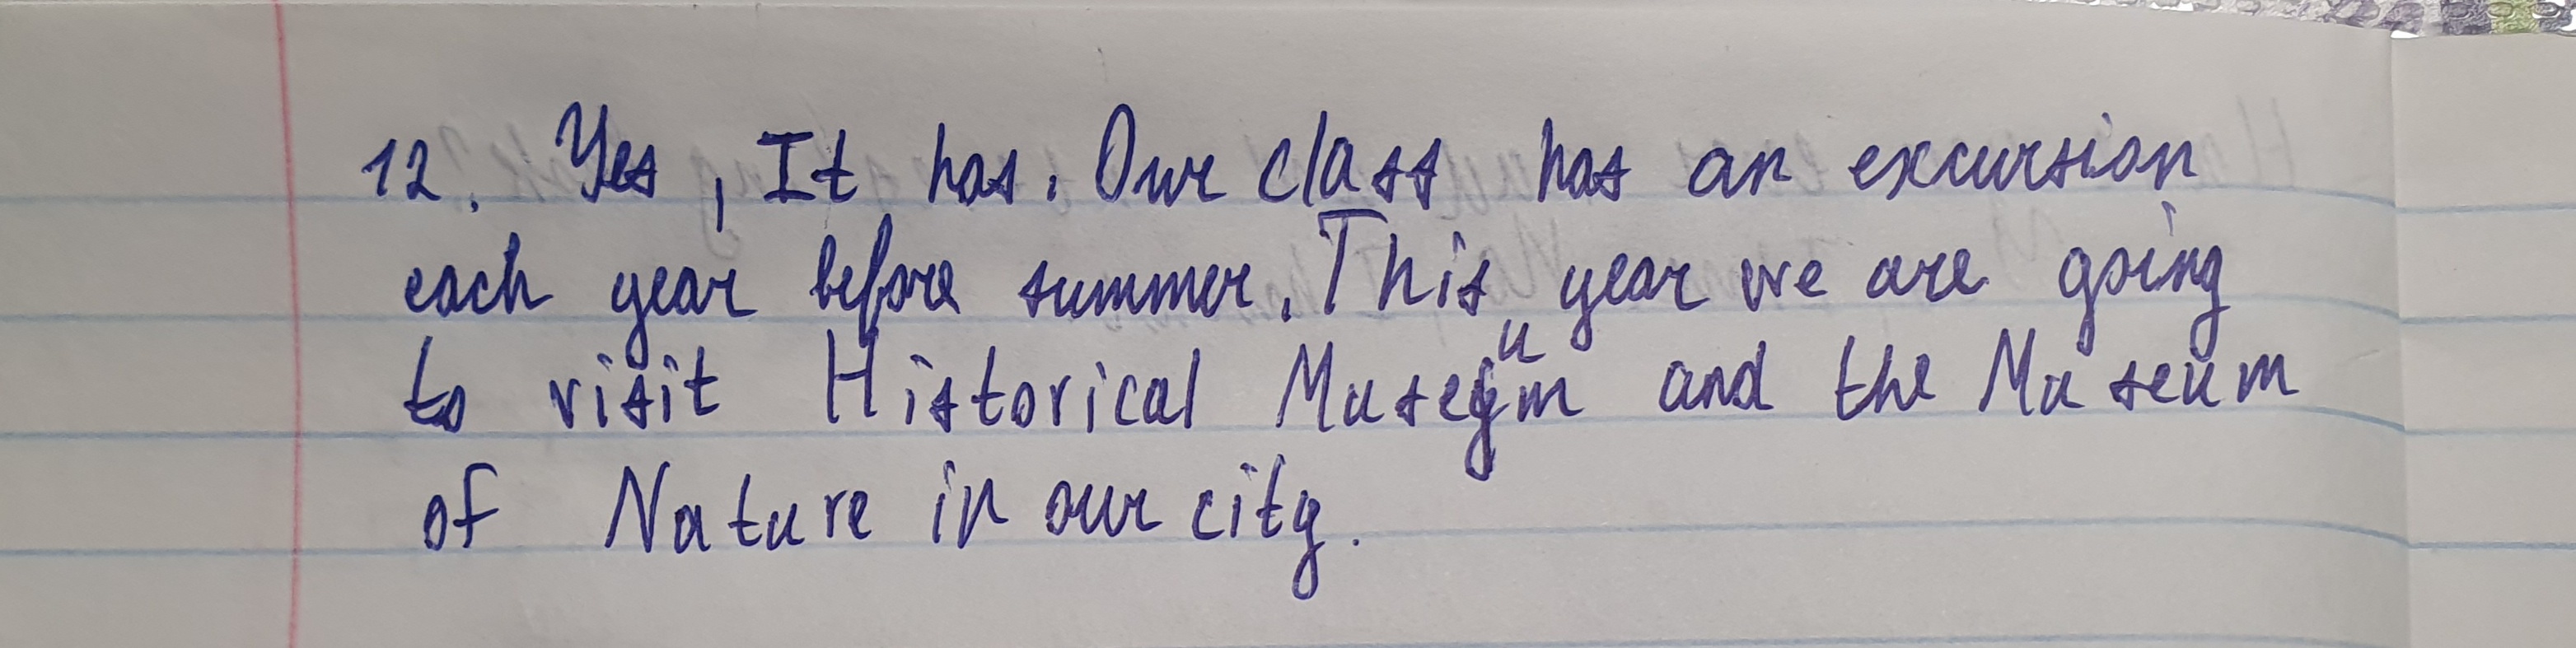 12. Yes, It has. Our class has an excursion
each year before summer. This year we are going
to visit Historical Museum and the Museum
of Nature in our city.